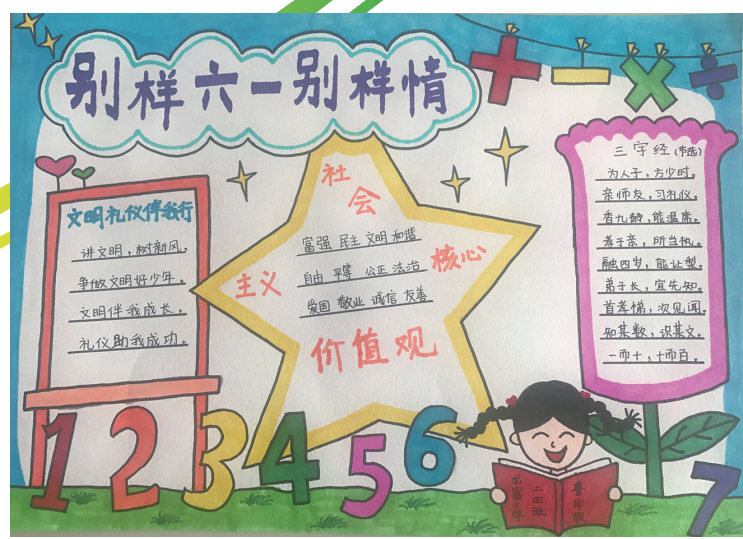 别样六一别样情
+ − × ÷
文明礼仪伴我行
讲文明,树新风。
争做文明好少年。
文明伴我成长。
礼仪助我成功。
社会
主义
核心
价值观
富强 民主 文明 和谐
自由 平等 公正 法治
爱国 敬业 诚信 友善
三字经(节选)
为人子,方少时。
亲师友,习礼仪。
香九龄,能温席。
孝于亲,所当执。
融四岁,能让梨。
弟于长,宜先知。
首孝悌,次见闻。
知某数,识某文。
一而十,十而百。
1 2 3 4 5 6 7
二四班